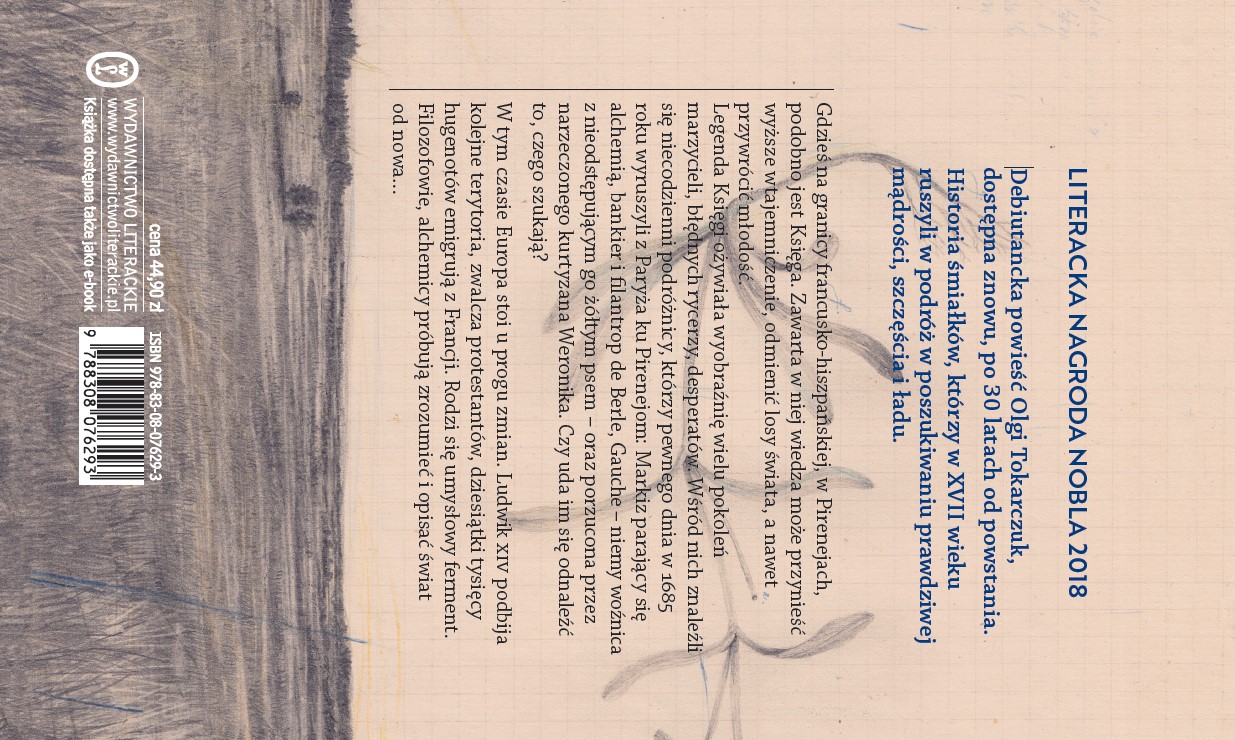 LITERACKA NAGRODA NOBLA 2018
Debiutancka powieść Olgi Tokarczuk,
dostępna znowu, po 30 latach od powstania.
Historia śmiałków, którzy w XVII wieku
ruszyli w podróż w poszukiwaniu prawdziwej
mądrości, szczęścia i ładu.
Gdzieś na granicy francusko-hiszpańskiej, w Pirenejach,
podobno jest Księga. Zawarta w niej wiedza może przynieść
wyższe wtajemniczenie, odmienić losy świata, a nawet
przywrócić młodość.
Legenda Księgi ożywiała wyobraźnię wielu pokoleń
marzycieli, błędnych rycerzy, desperatów. Wśród nich znaleźli
się niecodzienni podróżnicy, którzy pewnego dnia w 1685
roku wyruszyli z Paryża ku Pirenejom: Markiz parający się
alchemią, bankier i filantrop de Berle, Gauche – niemy woźnica
z nieodstępującym go żółtym psem – oraz porzucona przez
narzeczonego kurtyzana Weronika. Czy uda im się odnaleźć
to, czego szukają?
W tym czasie Europa stoi u progu zmian. Ludwik XIV podbija
kolejne terytoria, zwalcza protestantów, dziesiątki tysięcy
hugenotów emigrują z Francji. Rodzi się umysłowy ferment.
Filozofowie, alchemicy próbują zrozumieć i opisać świat
od nowa...
cena 44,90 zł
ISBN 978-83-08-07629-3
WYDAWNICTWO LITERACKIE
www.wydawnictwoliterackie.pl
Książka dostępna także jako e-book
9 788308 076293